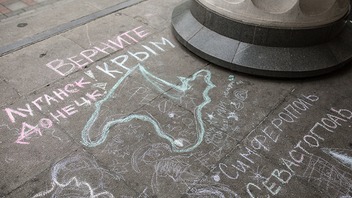 ВЕРНИТЕ
КРЫМ
ЛУГАНСК
ДОНЕЦК
СИМФЕРОПОЛЬ
СЕВАСТОПОЛЬ